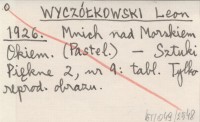 WYCZÓŁKOWSKI Leon
1926. Mnich nad Morskiem
Okiem. (Pastel.) – Sztuki
Piękne 2, nr 4: tabl. Tylko
reprod. obrazu.